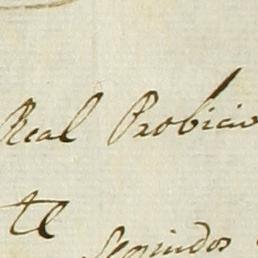 Real Probicio
te
Segundos